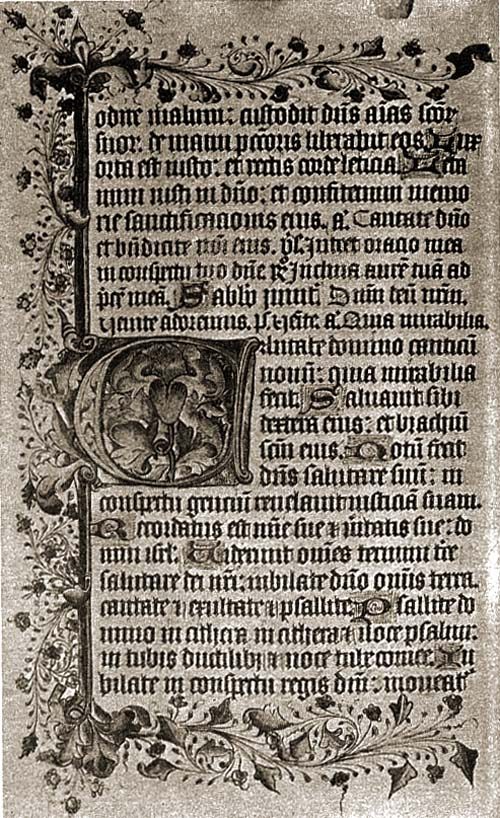 odite malum: custodit dns aias scor
suor: de manu pctoris liberabit eos. Lux
orta est iusto: et rectis corde leticia. Leta
mini iusti in dno: et confitemini memo
rie sanctificationis eius. a. Cantate dno
et bndicite noi eius. ps. Intret oracio mea
in conspectu tuo dne R Inclina aure tua ad
pce mea. Sabbo Dnm deu nrm.
venite adoremus. ps. venite. a. Quia mirabilia.
Cantate domino canticu
nouu: quia mirabilia
fecit. Saluauit sibi
dextera eius: et brachiu
scm eius. Notu fecit
dns salutare suu: in
conspectu genciu reuelauit iusticia suam.
Recordatus est mie sue et uitatis sue: do
mui isrl. Uiderunt omnes termini tre
salutare dei nri: iubilate dno omis terra.
cantate et exultate et psallite. Psallite do
mino in cithera in cithera et uoce psalmi:
in tubis ductilibus et uoce tube cornee. Iu
bilate in conspectu regis dni: moueat